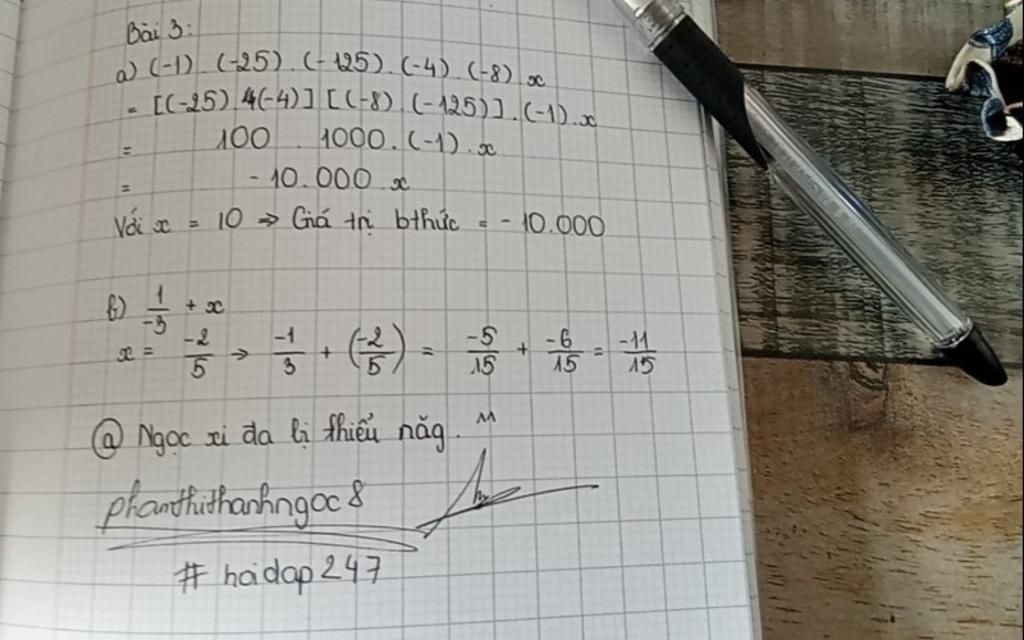 Bài 3:
a) (-1) . (-25) . (-125) . (-4) . (-8) . x
= [(-25) . (-4)] [(-8) . (-125)] . (-1) . x
= 100 1000 . (-1) . x
= -10.000 x
Với x = 10 => Giá trị bthức = -10.000
b) 1/-3 + x
x = -2/5 → -1/3 + (-2/5) = -5/15 + -6/15 = -11/15
@ Ngọc xi da bị thiểu năg.
phanthithanhngoc8
# hoidap247